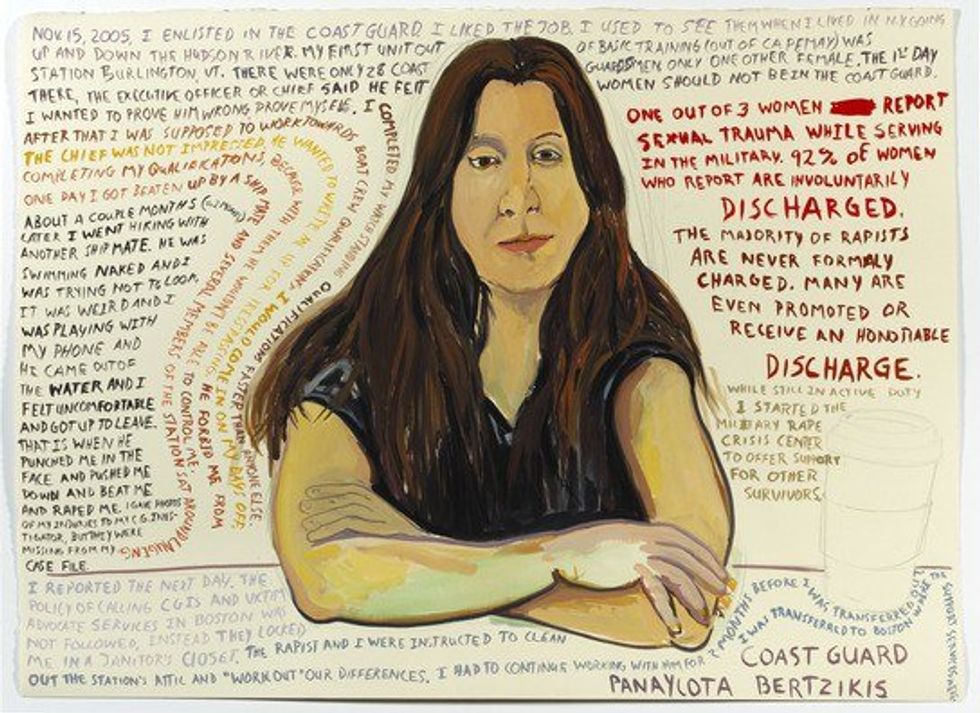 NOV. 15, 2005, I ENLISTED IN THE COAST GUARD. I LIKED THE JOB. I USED TO SEE THEM WHEN I LIVED IN NY GOING
UP AND DOWN THE HUDSON RIVER. MY FIRST UNIT OUT
OF BASIC TRAINING (OUT OF CAPEMAY) WAS
STATION BURLINGTON, VT. THERE WERE ONLY 28 COAST
GUARDSMEN ONLY ONE OTHER FEMALE. THE 1ST DAY
THERE, THE EXECUTIVE OFFICER OR CHIEF SAID HE FELT
WOMEN SHOULD NOT BE IN THE COAST GUARD.
I WANTED TO PROVE HIM WRONG PROVE MYSELF. I
COMPLETED MY WATCHSTANDING QUALIFICATIONS FASTER THAN ANYONE ELSE
AFTER THAT I WAS SUPPOSED TO WORK TOWARDS BOAT CREW QUALIFICATION, I WOULD COME IN ON MY DAYS OFF,
THE CHIEF WAS NOT IMPRESSED. HE WANTED TO WRITE ME UP FOR
COMPLETING MY QUALIFICATIONS, BECAUSE WITH THEM HE WOULDN'T BE ABLE TO CONTROL ME. HE FORBID ME FROM
ONE DAY I GOT BEATEN UP BY A SHIP MATE AND SEVERAL MEMBERS OF THE STATION SAT AROUND LAUGHING
ABOUT A COUPLE MONTHS
LATER I WENT HIKING WITH
ANOTHER SHIPMATE. HE WAS
SWIMMING NAKED AND I
WAS TRYING NOT TO LOOK,
IT WAS WEIRD AND I
WAS PLAYING WITH
MY PHONE AND
HE CAME OUT OF
THE WATER AND I
FELT UNCOMFORTABLE
AND GOT UP TO LEAVE.
THAT IS WHEN HE
PUNCHED ME IN THE
FACE AND PUSHED ME
DOWN AND BEAT ME
AND RAPED ME. I GAVE PHOTOS
OF MY INJURIES TO MY C.G. INVES-
TIGATOR, BUT THEY WERE
MISSING FROM MY
CASE FILE.
ONE OUT OF 3 WOMEN REPORT
SEXUAL TRAUMA WHILE SERVING
IN THE MILITARY. 92% OF WOMEN
WHO REPORT ARE INVOLUNTARILY
DISCHARGED.
THE MAJORITY OF RAPISTS
ARE NEVER FORMALY
CHARGED. MANY ARE
EVEN PROMOTED OR
RECEIVE AN HONORABLE
DISCHARGE.
WHILE STILL IN ACTIVE DUTY
I STARTED THE
MILITARY RAPE
CRISIS CENTER
TO OFFER SUPPORT
FOR OTHER
SURVIVORS.
I REPORTED THE NEXT DAY. THE
POLICY OF CALLING CGIS AND VICTIM
ADVOCATE SERVICES IN BOSTON WAS
NOT FOLLOWED, INSTEAD THEY LOCKED
ME IN A JANITOR'S CLOSET. THE RAPIST AND I WERE INSTRUCTED TO CLEAN
OUT THE STATION'S ATTIC AND "WORK OUT" OUR DIFFERENCES. I HAD TO CONTINUE WORKING WITH HIM FOR
MONTHS BEFORE I WAS TRANSFERRED OUT.
I WAS TRANSFERRED TO BOSTON WHERE THE
COAST GUARD
PANAYIOTA BERTZIKIS